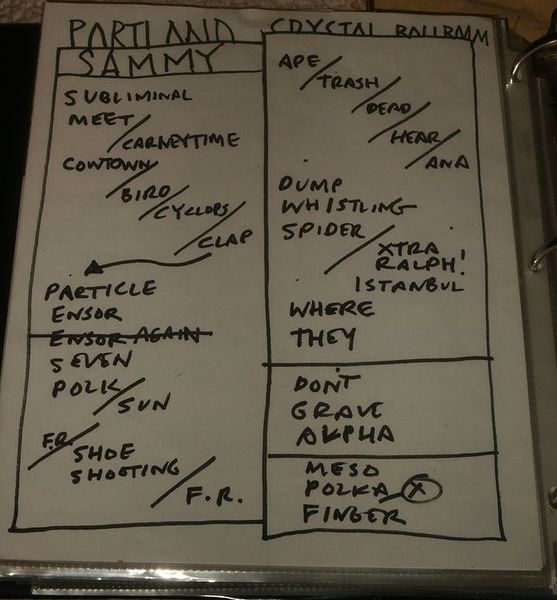 PARTLAND CRYSTAL BALLROOM
SAMMY
SUBLIMINAL
MEET/
CARNEYTIME
COWTOWN/
BIRD/
CYCLOPS/
CLAP
PARTICLE
ENSOR
ENSOR AGAIN
SEVEN
POLK/
SUN
F.R./
SHOE
SHOOTING/
F.R.
APE/
TRASH/
DEAD/
HEAR/
ANA
DUMP
WHISTLING
SPIDER/
XTRA
RALPH!
ISTANBUL
WHERE
THEY
DON'T
GRAVE
ALPHA
MESO
POLKA X
FINGER